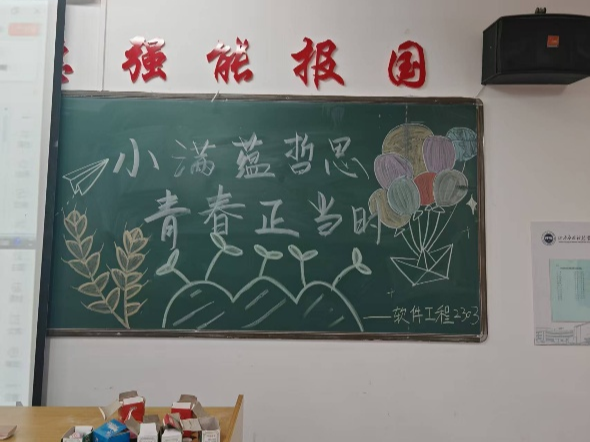 强能报国
小满蕴哲思
青春正当时
——软件工程2303